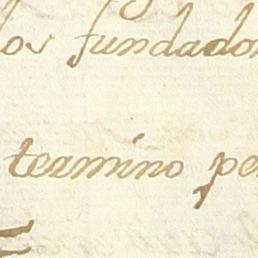 los fundador
termino pe